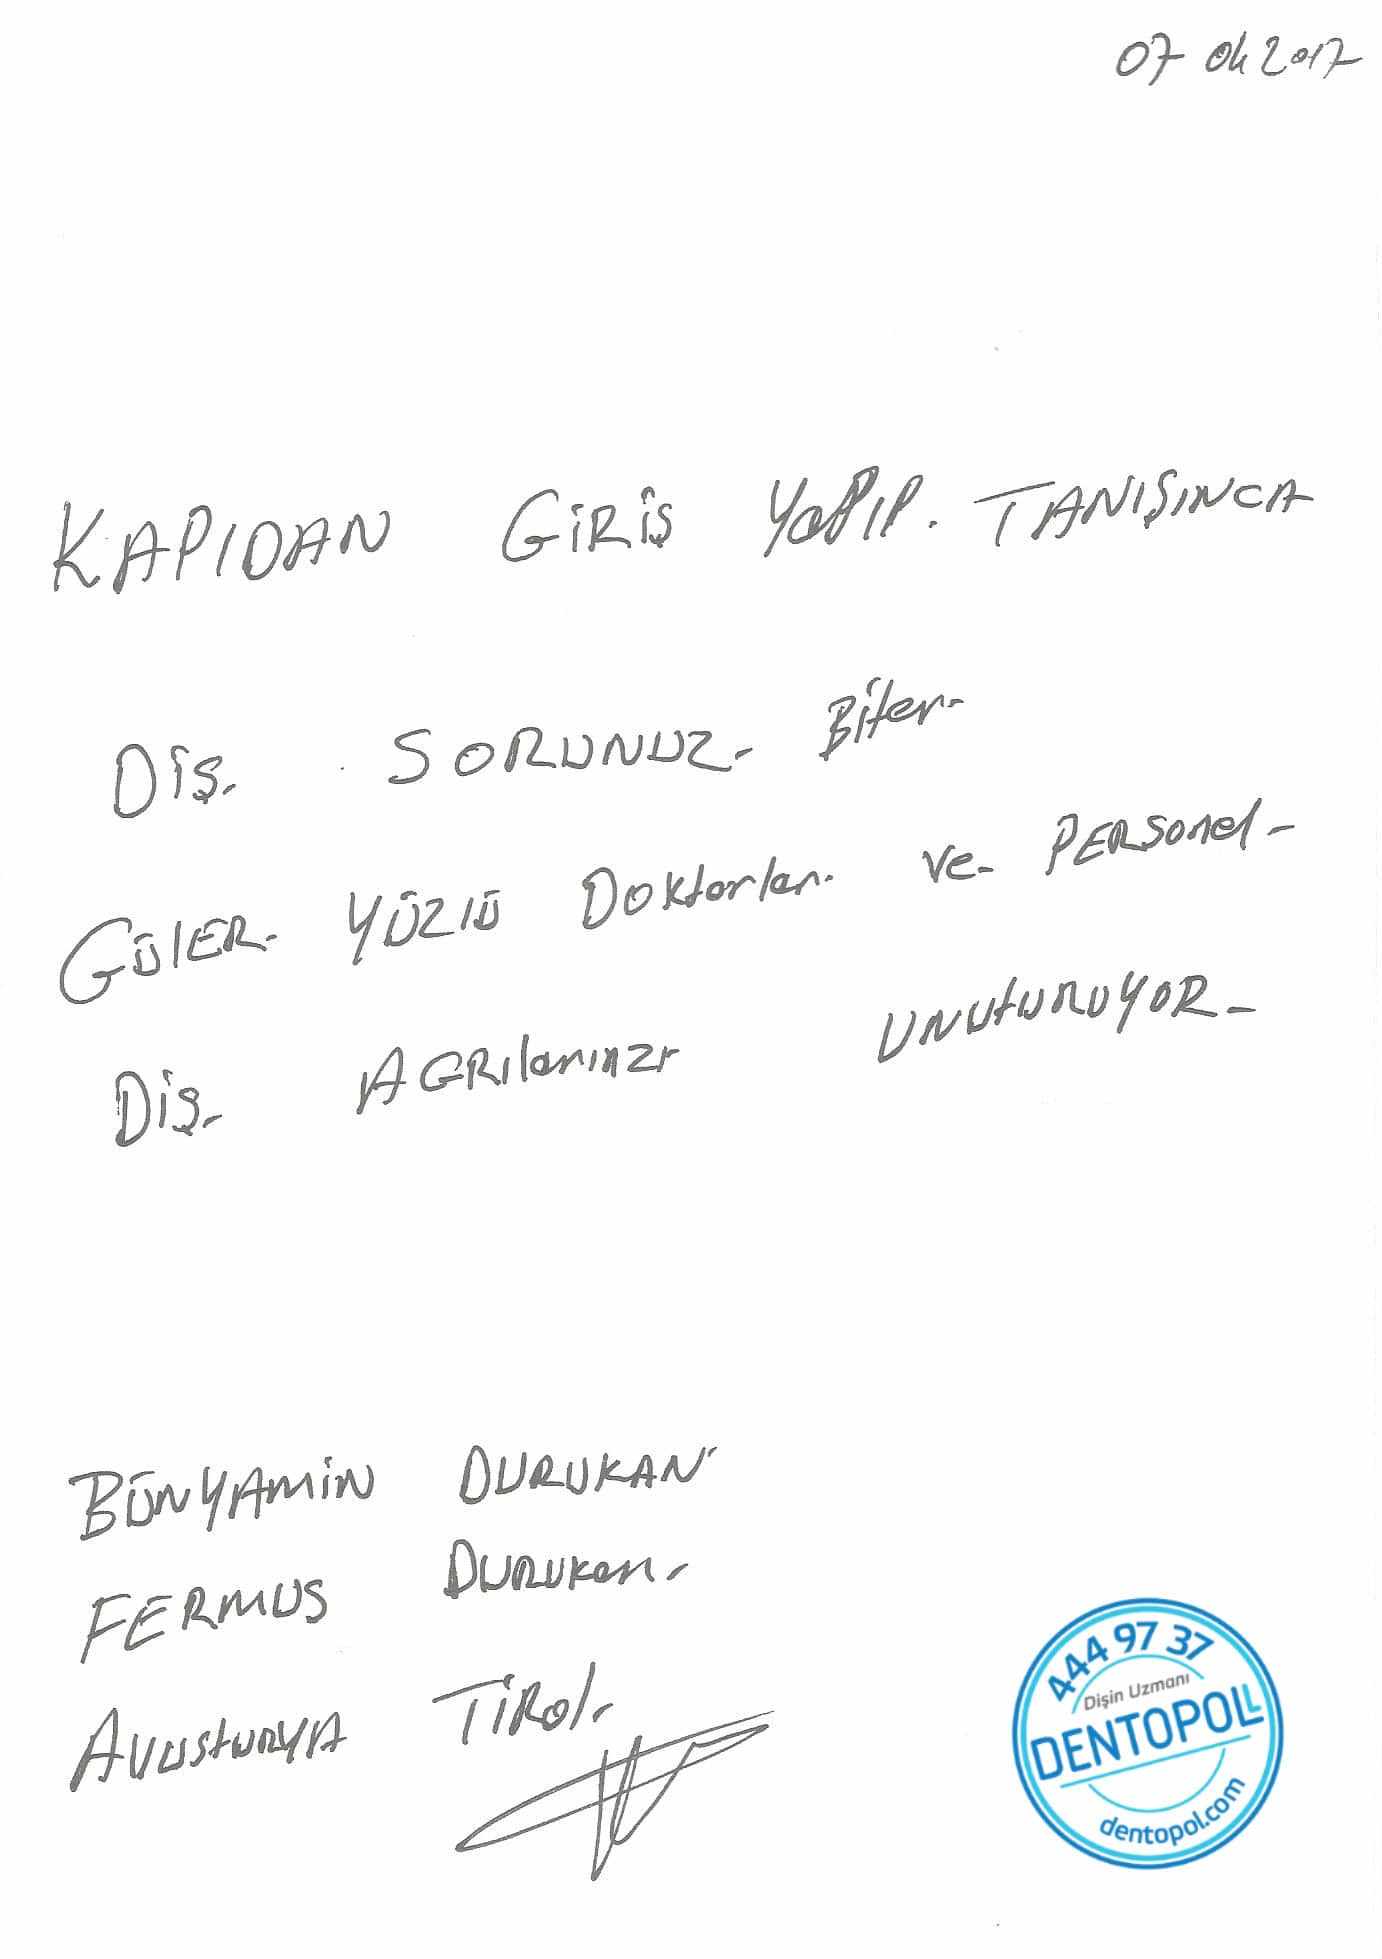 07 04 2017
KAPIDAN GİRİŞ YAPIP. TANIŞINCA
DİŞ. SORUNUZ. BİTER.
GÜLER. YÜZlÜ Doktorlar. ve. PERSonel.
DİŞ. AGRIlarınızı UNUTURUYOR.
BÜNYAMİN DURUKAN
FERMUS DURUKAN.
AVUSTURYA TİROL.
444 97 37
Dişin Uzmanı
DENTOPOLL
dentopol.com